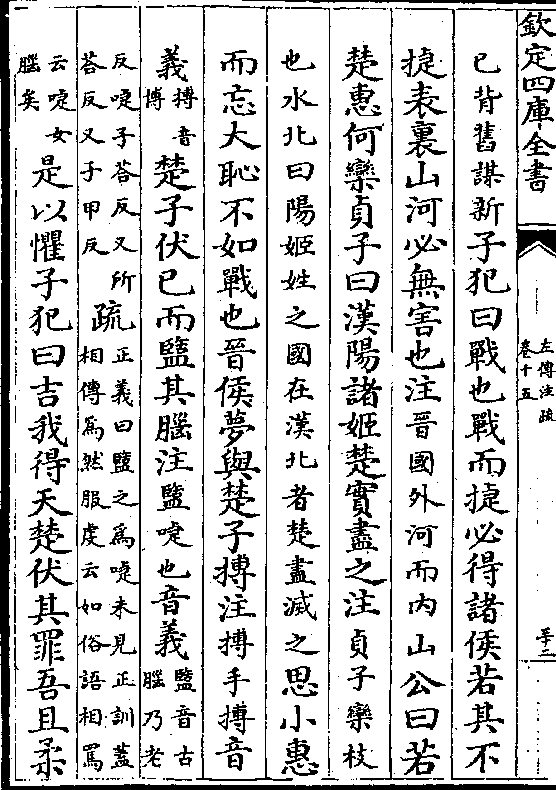 欽定四庫全書
左傳注疏
卷十五
已背舊謀新子犯曰戰也戰而捷必得諸侯若其不
捷表裏山河必無害也注晉國外河而内山公曰若
楚惠何欒貞子曰漢陽諸姬楚實盡之注貞子欒枝
也水北曰陽姬姓之國在漢北者楚盡滅之思小惠
而忘大恥不如戰也晉侯夢與楚子搏注搏手搏音
義搏音博楚子伏已而盬其腦注盬啑也音義盬音古腦乃老
反啑子荅反又所荅反又子甲反疏正義曰盬之為啑未見正訓蓋相傳為然服虔云如俗語相罵
云啑女腦矣是以懼子犯曰吉我得天楚伏其罪吾且柔